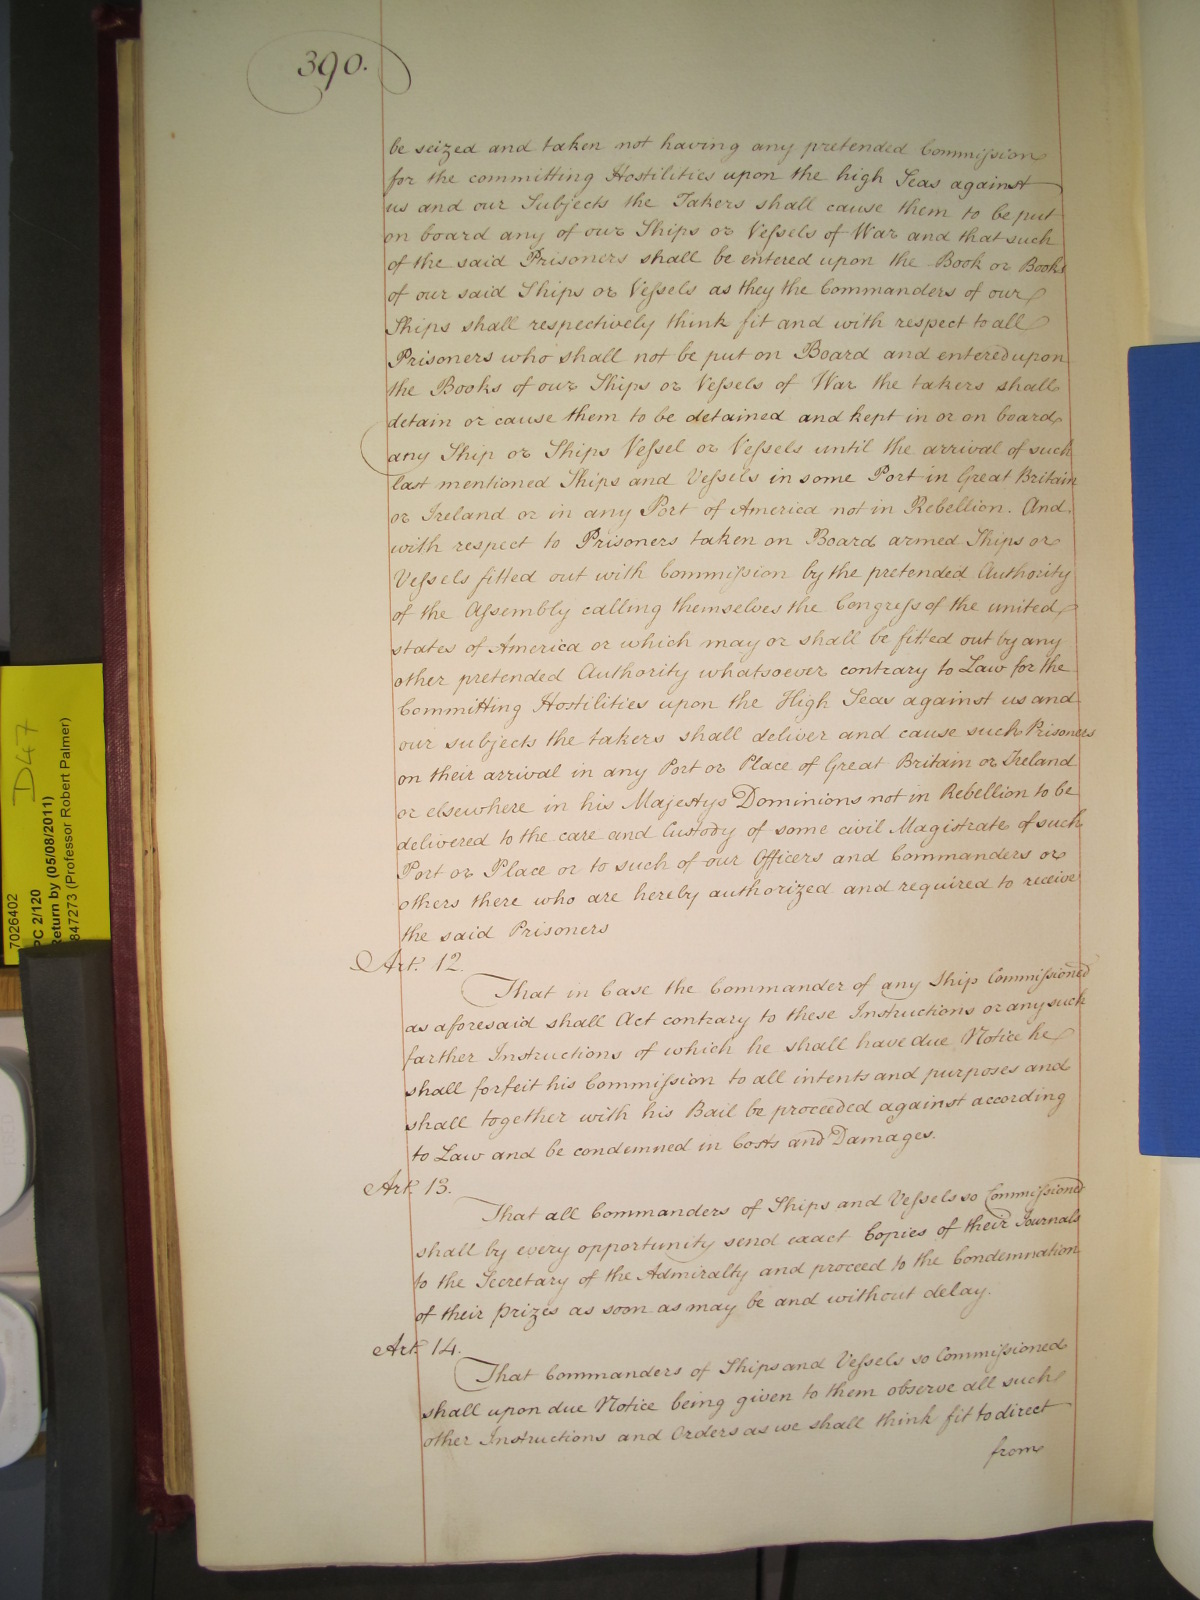 390.
be seized and taken not having any pretended Commission
for the committing Hostilities upon the high Seas against
us and our Subjects the Takers shall cause them to be put
on board any of our Ships or Vessels of War and that such
of the said Prisoners shall be entered upon the Book or Books
of our said Ships or Vessels as they the Commanders of our
Ships shall respectively think fit and with respect to all
Prisoners who shall not be put on Board and entered upon
the Books of our Ships or Vessels of War the takers shall
detain or cause them to be detained and kept in or on board
any Ship or Ships Vessel or Vessels until the arrival of such
last mentioned Ships and Vessels in some Port in Great Britain
or Ireland or in any Port of America not in Rebellion. And
with respect to Prisoners taken on Board armed Ships or
Vessels fitted out with Commission by the pretended Authority
of the Assembly calling themselves the Congress of the united
states of America or which may or shall be fitted out by any
other pretended Authority whatsoever contrary to Law for the
Committing Hostilities upon the High Seas against us and
our subjects the takers shall deliver and cause such Prisoners
on their arrival in any Port or Place of Great Britain or Ireland
or elsewhere in his Majestys Dominions not in Rebellion to be
delivered to the care and Custody of some civil Magistrate of such
Port or Place or to such of our Officers and Commanders or
others there who are hereby authorized and required to receive
the said Prisoners
Art. 12.
That in Case the Commander of any Ship Commissioned
as aforesaid shall Act contrary to these Instructions or any such
farther Instructions of which he shall have due Notice he
shall forfeit his Commission to all intents and purposes and
shall together with his Bail be proceeded against according
to Law and be condemned in Costs and Damages.
Art. 13.
That all Commanders of Ships and Vessels so Commissioned
shall by every opportunity send exact Copies of their Journals
to the Secretary of the Admiralty and proceed to the Condemnation
of their prizes as soon as may be and without delay.
Art. 14.
That Commanders of Ships and Vessels so Commissioned
shall upon due Notice being given to them observe all such
other Instructions and Orders as we shall think fit to direct
from
D47
7026402
PC 2/120
Return by (05/08/2011)
847273 (Professor Robert Palmer)